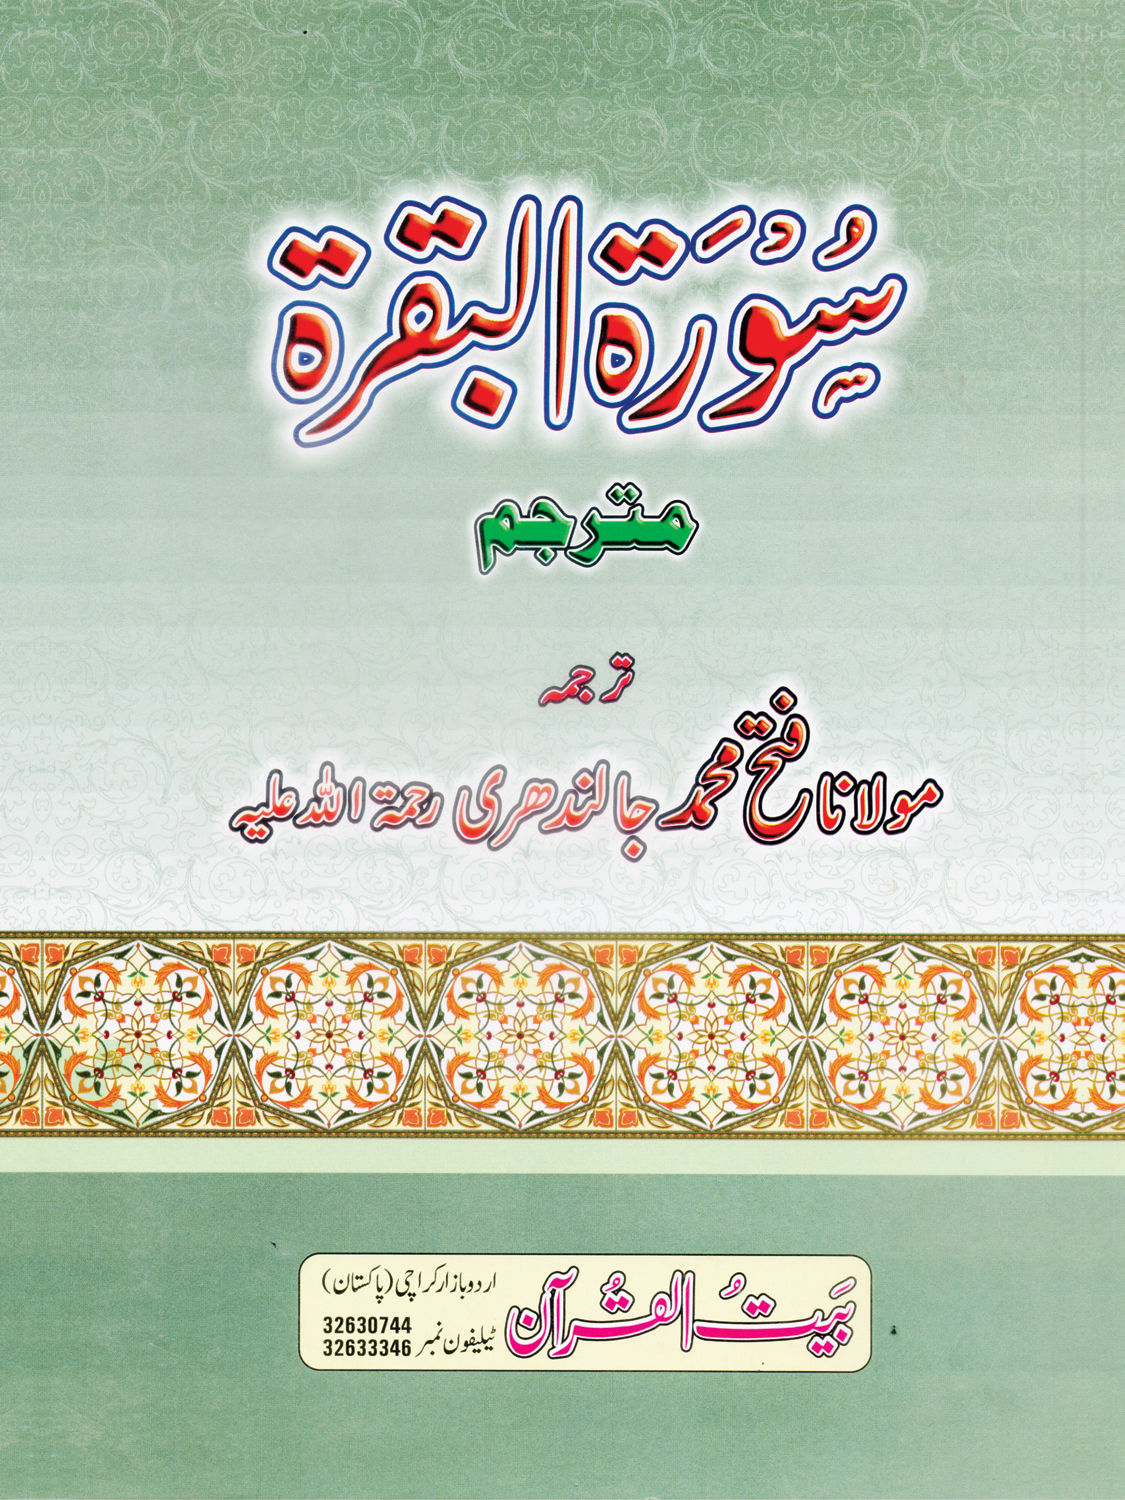 سُوْرَةُ الْبَقَرَة
مترجم
ترجمہ
مولانا فتح محمد جالندھری رحمۃ اللہ علیہ
بَيتُ القُرآن
اردو بازار کراچی (پاکستان)
ٹیلیفون نمبر 32630744
32633346